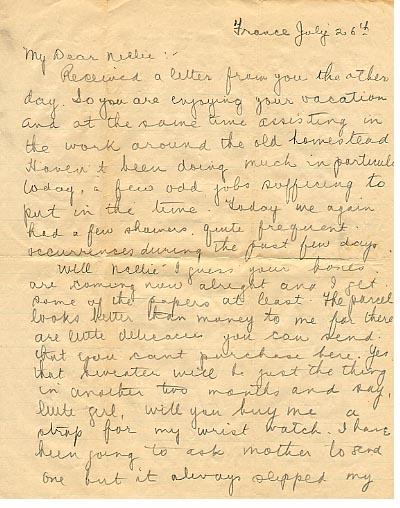 France July 26th
My Dear Nellie :-
Received a letter from you the other
day. So you are enjoying your vacation
and at the same time assisting in
the work around the old homestead
Haven't been doing much in particular
today, a few odd jobs sufficing to
put in the time. Today we again
had a few showers. quite frequent
occurrences during the past few days.
Well Nellie I guess your boxes
are coming now alright and I get
some of the papers at least. The parcel
looks better than money to me for there
are little delicacies you can send
that you cant purchase here. Yes,
that sweater will be just the thing
in another two months and say,
little girl, will you buy me a
strap for my wrist watch. I have
been going to ask mother to send
one but it always slipped my